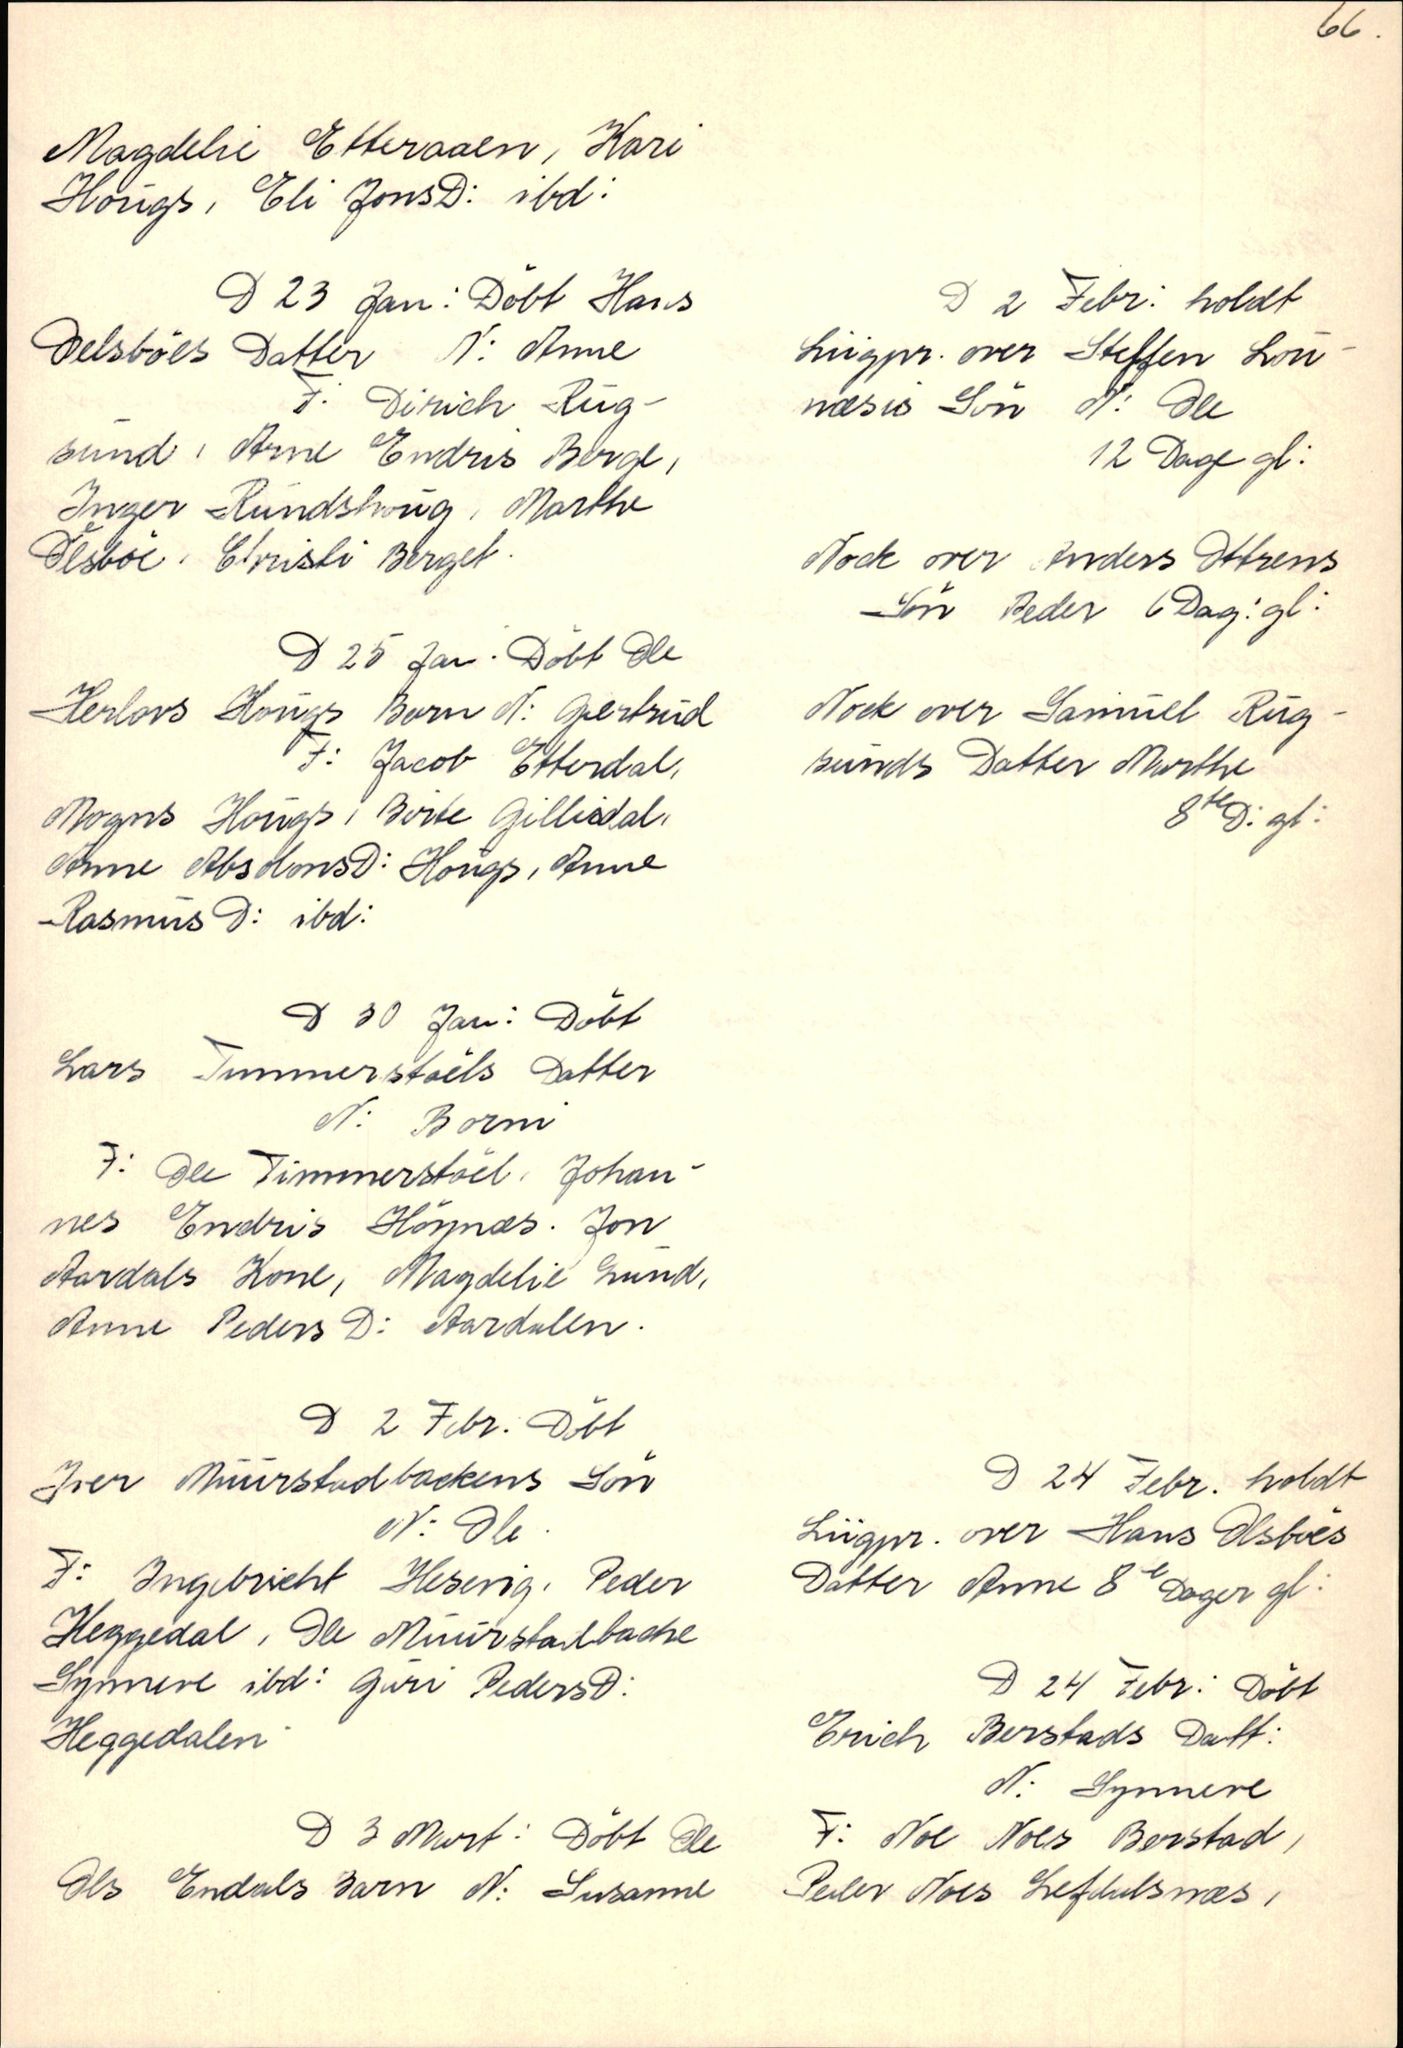 66.
Magdelie Etteraaen, Kari
Hougs, Eli JonsD: ibd:
D 23 Jan: Döbt Hans
Oelsböes Datter N: Anne
F: Dirich Rug-
sund, Arne Endris Berge,
Inger Rundshoug, Marthe
Olsböe, Christi Berget.
D 25 Jan. Döbt Ole
Herlovs Hougs Barn N: Giertrud
F: Jacob Etterdal,
Mogns Hougs, Birte Gillisdal,
Anne AbsolonsD: Hougs, Anne
RasmusD: ibd:
D 30 Jan: Döbt
Lars Timmerstöels Datter
N: Borni
F: Ole Timmerstöel, Johan-
nes Endris Höynæs. Jon
Aardals Kone, Magdelie Lund,
Anne PedersD: Aardalen.
D 2 Febr. Döbt
Iver Muurstadbackens Sön
N: Ole.
F: Ingebricht Hesevig, Peder
Heggedal, Ole Muurstadbacke
Synneve ibd: Guri PedersD:
Heggedalen
D 3 Mart: Döbt Ole
Ols Endals Barn N: Susanne
D 2 Febr: holdt
Liigpr. over Steffen Lou-
næsis Sön N: Ole
12 Dage gl:
Nock over Anders Ottrens
Sön Peder 6 Dag: gl:
Nock over Samuel Rug-
sunds Datter Marthe
8te D: gl:
D 24 Febr. holdt
Liigpr. over Hans Olsböes
Datter Anne 8te Dager gl:
D 24 Febr: Döbt
Erich Berstads Datt:
N: Synneve
F: Noe Noes Berstad,
Peder Noes Lefdalsnæs,